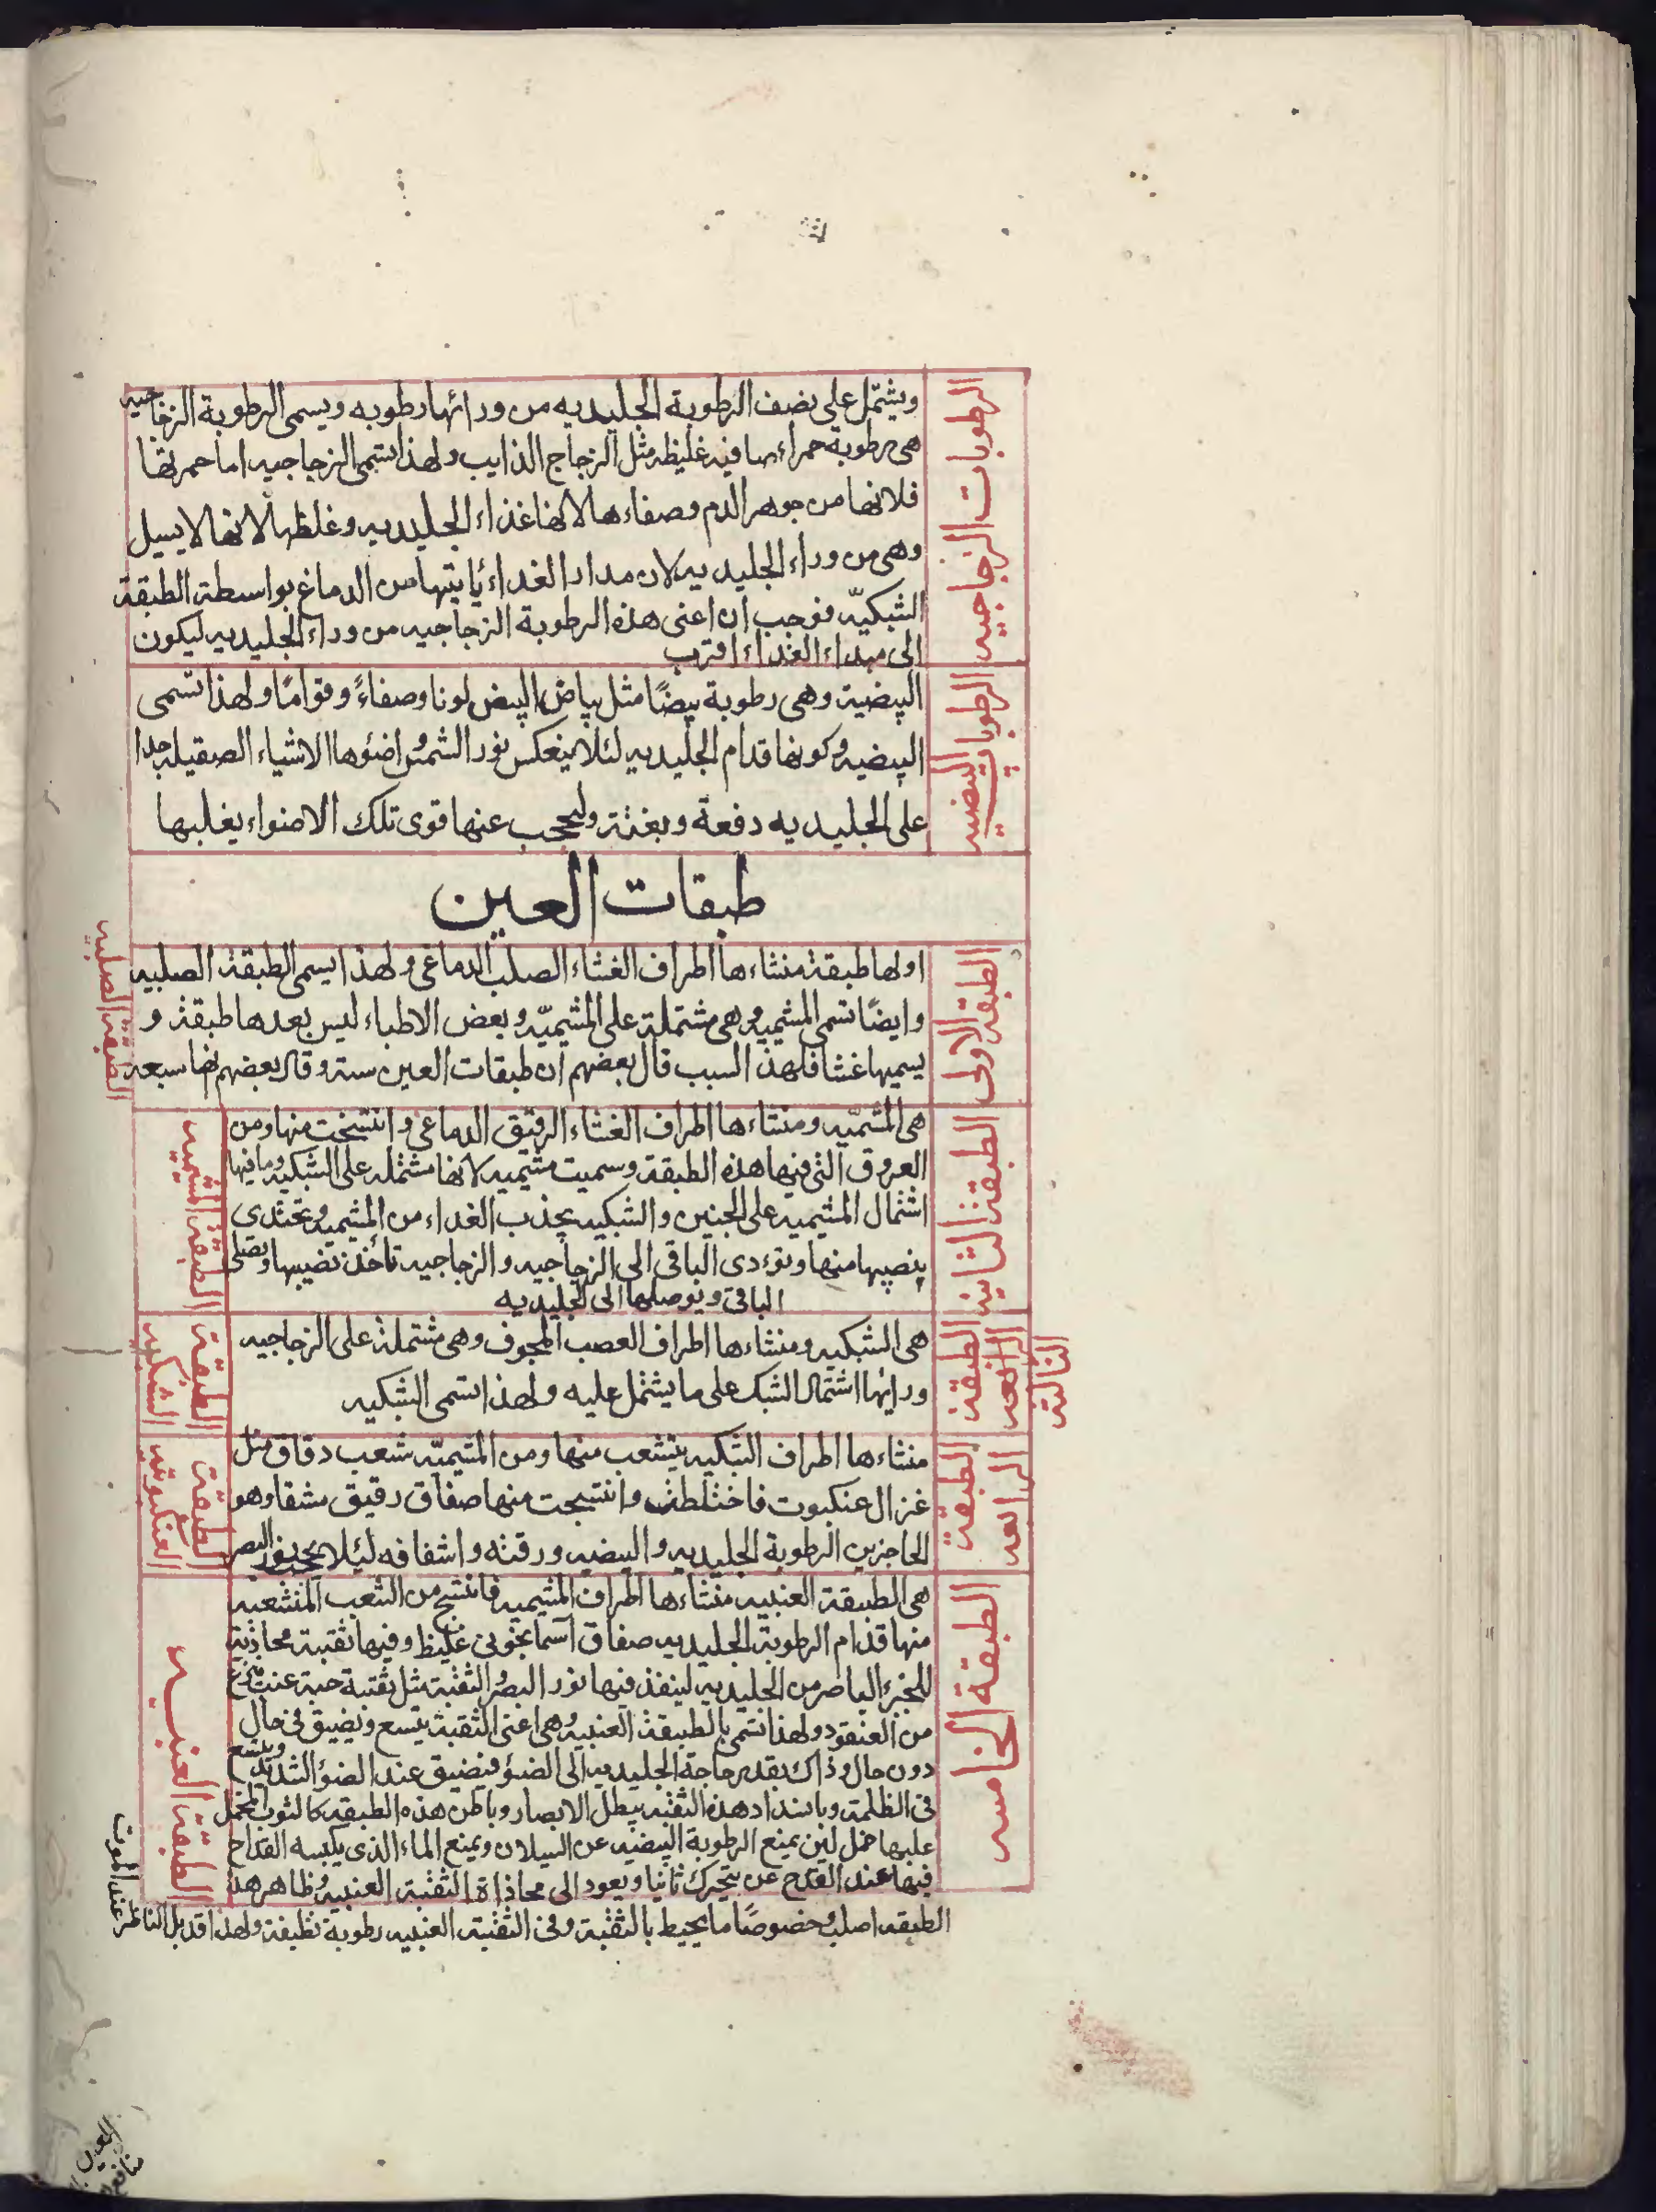 الرطوبات الزجاجيه
ويشتمل على نصف الرطوبة الجليديه من ورائها رطوبه ويسمى الرطوبة الزجاجيه
هى رطوبة حمراء صافيه غليظه مثل الزجاج الذايب ولهذا تسمى الزجاجيه اما حمرتها
فلانها من جوهر الدم وصفاءها لانها غذاء الجليديه وغلظها لانها لا يسيل
وهى من وراء الجليديه لان مدار الغداء يأتيها من الدماغ بواسطة الطبقة
الشبكيّه فوجب ان اعنى هذه الرطوبة الزجاجيه من وراء الجليديه ليكون
الى مبداء الغداء اقرب
الرطوبات البيضيه
البيضية وهى رطوبة بيضًا مثل بياض البيض لونا وصفاءً وقوامًا ولهذا تسمى
البيضيه وكونها قدام الجليديه لئلا ينعكس نور الشمس واضئوها الاشياء الصقيله جدا
على الجليديه دفعة وبغتة وليحجب عنها قوى تلك الاضواء يغلبها
طبقات العين
الطبقة الاولى
اولها طبقة منشاءها اطراف الغشاء الصلب الدماغى ولهذا يسمى الطبقة الصلبيه
وايضًا تسمى المشيميه وهى مشتملة على المشيميّه وبعض الاطباء ليس بعدها طبقة و
يسميها غشا فلهذا السبب قال بعضهم ان طبقات العين ستة وقال بعضهم انها سبعه
الطبقة الصلبيه
الطبقة الثانيه
هى المشميّه ومنشاءها اطراف الغشاء الرقيق الدماغى وانتسجت منها ومن
العروق التى فيها هذه الطبقة وسميت مشيميه لانها مشتمله على الشبكيه وما فيها
اشتمال المشيميه على الجنين والشبكيه يجذب الغداء من المشيميه وتغتدى
بنصيبها منها وتودى الباقى الى الزجاجيه والزجاجيه تأخذ نصيبها وتصفى
الباقى ويوصلها الى الجليديه
الطبقة المشيميه
الطبقة الرابعه
الثالثه
هى الشبكيه ومنشاءها اطراف العصب المجوف وهى مشتملة على الزجاجيه
ورائها اشتمال الشبك على ما يشتمل عليه ولهذا تسمى الشبكيه
الطبقة الشبكيه
الطبقة الرابعه
منشاءها اطراف الشبكيه يتشعب منها ومن المشيميّه شعب دقاق مثل
غزال عنكبوت فاختلطت وانتسجت منها صفاق رقيق مشفا وهو
الحاجز بين الرطوبة الجليديه والبيضيه ورقته واشفافه ليلا يحجب نور البصر
الطبقة العنكبوتيه
الطبقة الخامسه
هى الطبقة العنبيه منشاءها اطراف المشيميه فانتسج من الشعب المنشعبه
منها قدام الرطوبة الجليديه صفاق اسمانجونى غليظ وفيها ثقبة محاذية
للجزء الباصر من الجليديه لينفذ فيها نور البصر والثقبة مثل ثقبة حبة عنب تنزع
من العنقود ولهذا تسمى بالطبقة العنبيه وهى اعنى الثقبة يتسع ويضيق فى حال
دون حال وذاك بقدر حاجة الجليديه الى الضؤ فيضيق عند الضؤ الشديد ويتسع
فى الظلمة وبانسداد هذه الثقبة يبطل الابصار وباطن هذه الطبقه كالثوب المخمل
عليها خمل لين يمنع الرطوبة البيضيه عن السيلان ويمنع الماء الذى يكبسه القداح
فيها عند القدح عن يتحرك ثانيا ويعود الى محاذاة الثقبة العنبيه وظاهر هذ
الطبقه اصلب وخصوصًا ما يحيط بالثقبة وفى الثقبة العنبيه رطوبة نظيفة ولهذا قد يبل الناظر عند الموت
الطبقة العنبيه
العين
منافع